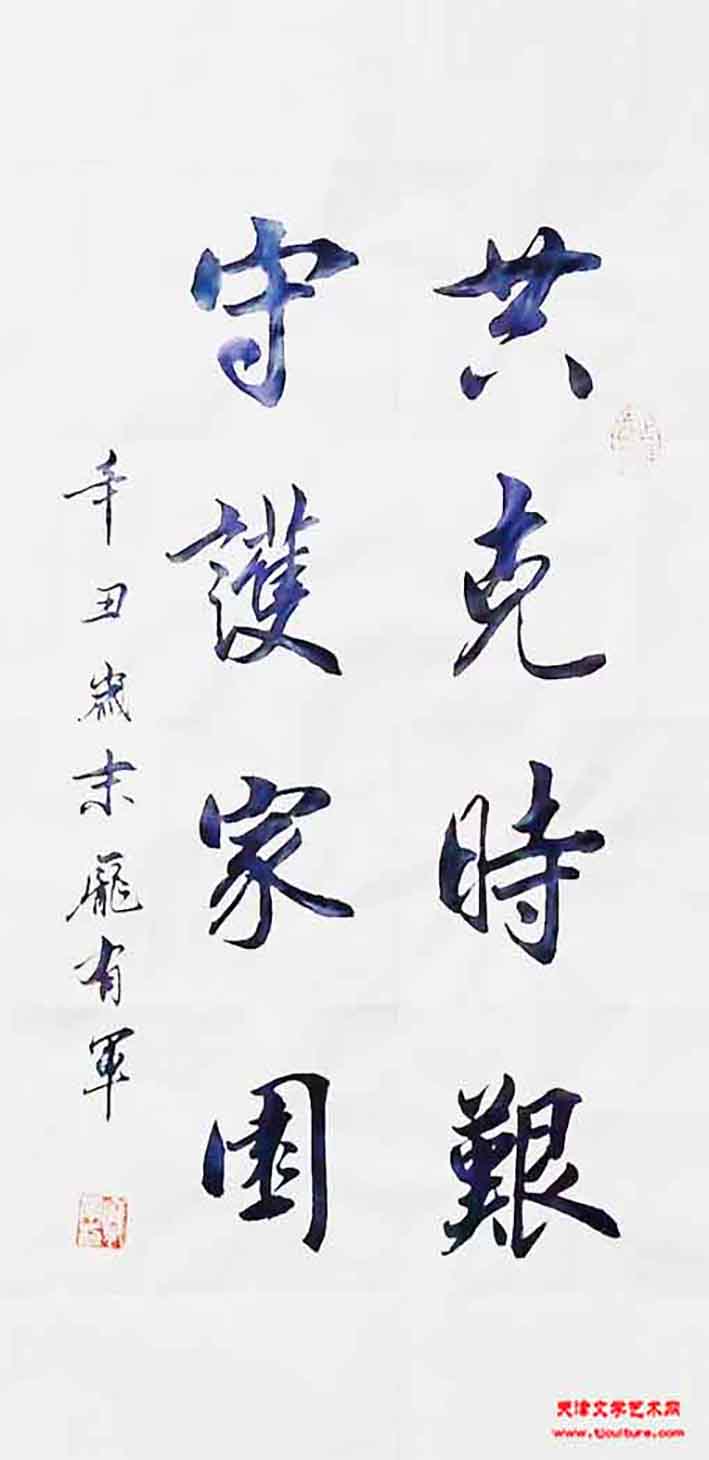 共克時艱
守護家園
辛丑歲末龐有軍
天津文学艺术网
www.tjculture.com